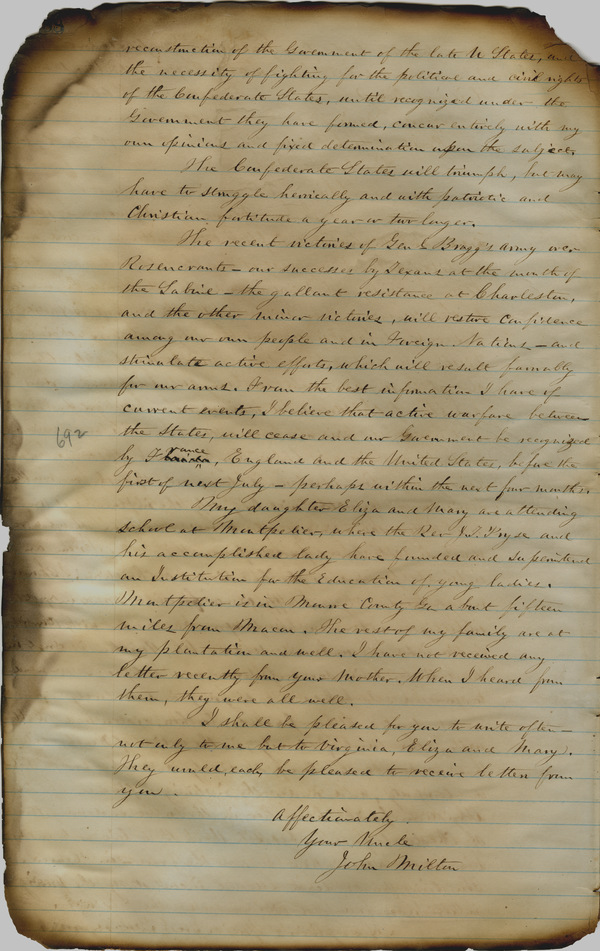 reconstruction of the Government of the late U States, and
the necessity of fighting for the political and civil rights
of the Confederate States, until recognized under the
Government they have formed, concur entirely with my
own opinions and fixed determination upon the subject.
The Confederate States will triumph, but may
have to struggle heroically and with patriotic and
Christian fortitude a year or two longer.
The recent victories of Genl Bragg's army over
Rosencrantz – our successes by Texans at the mouth of
the Sabine – the gallant resistance at Charleston,
and the other minor victories, will restore confidence
among our own people and in Foreign Nations – and
stimulate active efforts, which will result favorably
for our arms. From the best information I have of
current events, I believe that active warfare between
the States, will cease and our Government be recognized
692
by France, England and the United States, before the
first of next July – perhaps within the next four months.
My daughter Eliza and Mary are attending
school at Montpelier, where the Rev J.T. Pryse and
his accomplished lady have founded and superintend
an Institution for the Education of young ladies.
Montpelier is in Monroe County Ga about fifteen
miles from Macon. The rest of my family are at
my plantation and well. I have not received any
letter recently from your Mother. When I heard from
them, they were all well.
I shall be pleased for you to write often –
not only to me but to Virginia, Eliza and Mary.
They would, each, be pleased to receive letters from
you.
Affectionately
Your Uncle
John Milton